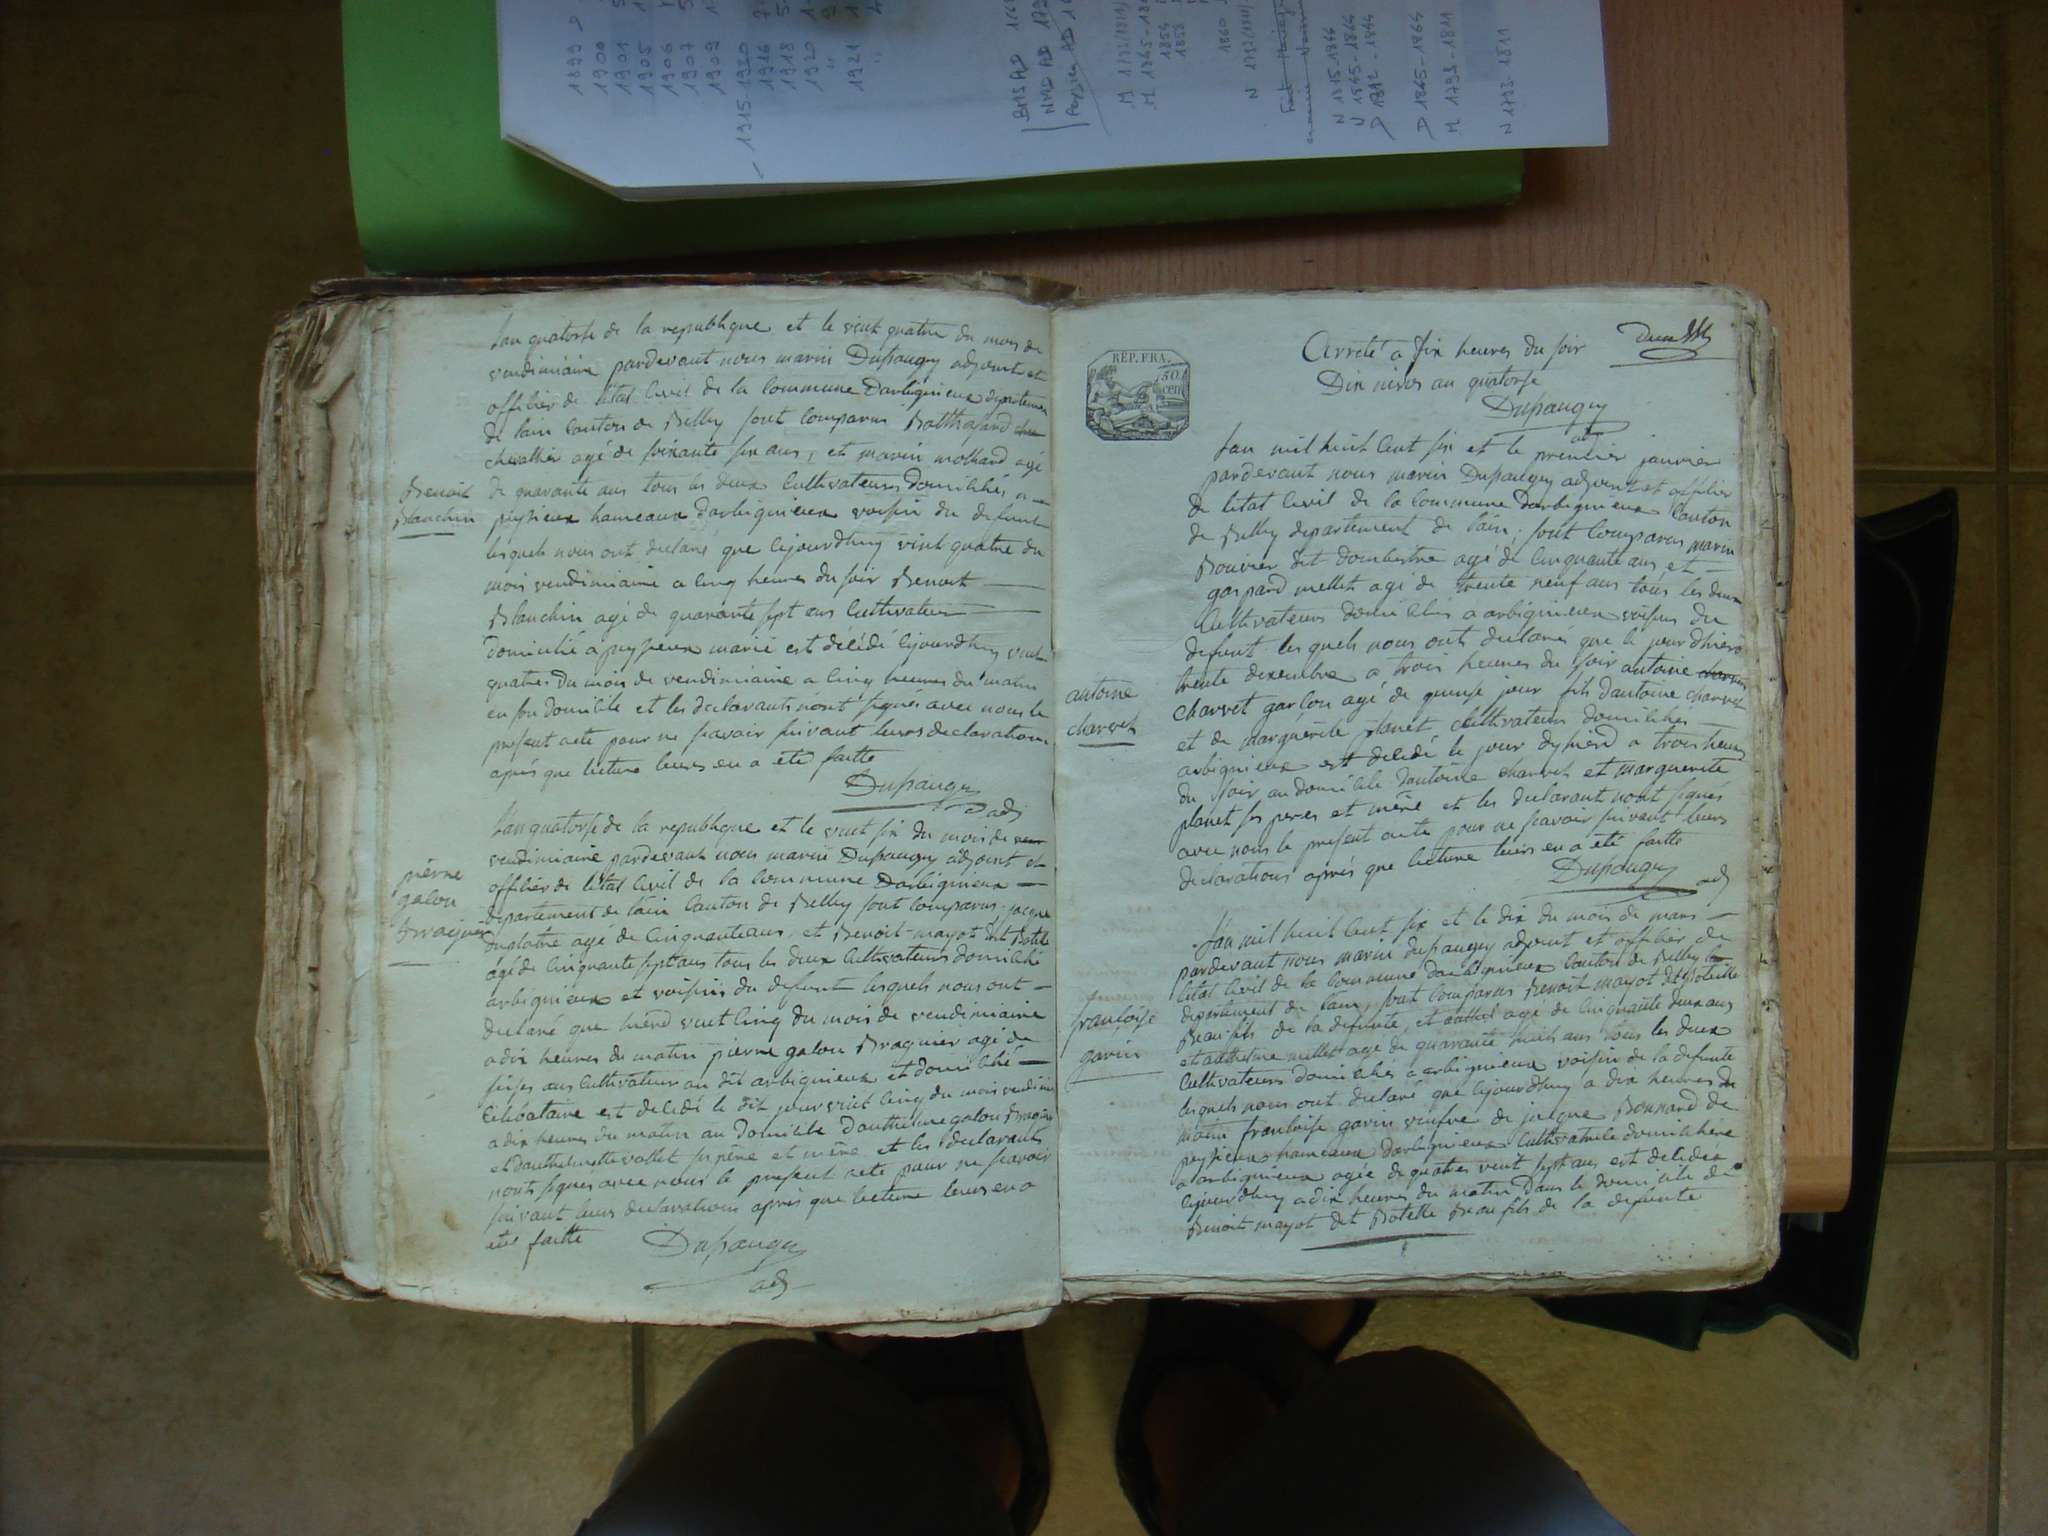 1899
1900
1901
1905
1906
1907
1909
1915-1920
1916
1918
1920
1921
BMS AD
NMD AD
M 1865-18
1854
1853
1860
N 1815-1844
N 1845-1864
D 1812-1844
D 1845-1864
M 1793-1811
N 1793-1811
lan quatorse de la republique et le vint quatre du mois de
vendimiaire pardevant nous marin Dupaugey adjoint et
officier de letat Civil de la Commune Darbignieux departement
de lain Canton de Belley sont Comparus Balthasard
chevallier agé de soixante six ans, et marin mollard agé
de quarante ans tous les deux Cultivateurs Domicilies a
peysieux hameaux darbignieux voisin du defunt
lesquels nous ont declaré que cejourdhuy vint quatre du
mois vendimiaire a cinq heures du soir Benoit
Blanchin agé de quarante sept ans Cultivateur
domicilié a peysieux marié est décédé cejourdhuy vint
quatre du mois de vendimiaire a cinq heures du matin
en son domicile et les declarants nont signés avec nous le
present acte pour ne scavoir suivant leurs declarations
après que lecture leurs en a eté faitte
Dupaugey
adj
Benoit
Blanchin
lan quatorse de la republique et le vint six du mois de
vendimiaire pardevant nous marin Dupaugey adjoint et
officier de letat Civil de la Commune Darbignieux
departement de lain Canton de Belley sont Comparus jacque
agé de Cinquante ans, et Benoit mayot dit Botelle
agé de Cinquante sept ans tous les deux Cultivateurs domicilié
arbignieux et voisins du defunt lesquels nous ont
declaré que hierd vint cinq du mois de vendimiaire
a dix heures du matin pierre galon Braquier agé de
seises ans Cultivateur au dit arbignieux et domicilié
Célibataire est decedé le dit jour vint cinq du mois vendimiaire
a dix heures du matin au domicile danthelme galon Braquier
et danthelmette vallet ses père et mère et les declarants
nont signes avec nous le present acte pour ne scavoir
suivant leurs declarations après que lecture leurs en a
eté faitte
Dupaugey
adj
pierre
galon
Braquier
REP. FRA.
50
cen
Arreté a six heures du soir
Dix nivos an quatorse
Dupaugey
adj
lan mil huit Cent six et le premier janvier
pardevant nous marin Dupaugey adjoint et officier
de letat Civil de la Commune Darbignieux Canton
de Belley departement de lain, sont Comparus marin
Bouvier dit agé de Cinquante ans et
gaspard mellet agé de trente neuf ans tous les deux
Cultivateurs domicilies a arbignieux voisins du
defunt lesquels nous ont declarés que le jour dhierd
trente decembre a trois heures du soir antoine
charvet garçon agé de quinse jour fils dantoine charvet
et de marguerite planet Cultivateurs domicilies
arbignieux est decedé le jour dyhierd a trois heures
du soir au domicile dantoine charvet et marguerite
planet ses peres et mère et les declarant nont signés
avec nous le present acte pour ne scavoir suivant leurs
déclarations après que lecture leurs en a eté faitte
Dupaugey
adj
antoine
charvet
lan mil huit Cent six et le dix du mois de mars
pardevant nous marin dupaugey adjoint et officier de
letat Civil de la Commune darbignieux Canton de Belley
departement de lain, sont Comparus Benoit mayot dit Botelle
Beau fils de la defunte, et agé de Cinquante deux ans
et anthelme mellet agé de quarante huit ans tous les deux
Cultivateurs domicilies a arbignieux voisin de la defunte
lesquels nous ont declaré que cejourdhuy a dix heures du
matin francoise gavin veufve de jacque Bonnard de
peysieux hameaux darbignieux Cultivatrice domiciliere
a arbignieux agée de quatres vint sept ans est decedée
cejourdhuy a dix heures du matin Dans le domicile de
Benoit mayot dit Botelle Beau fils de la defunte
françoise
gavin